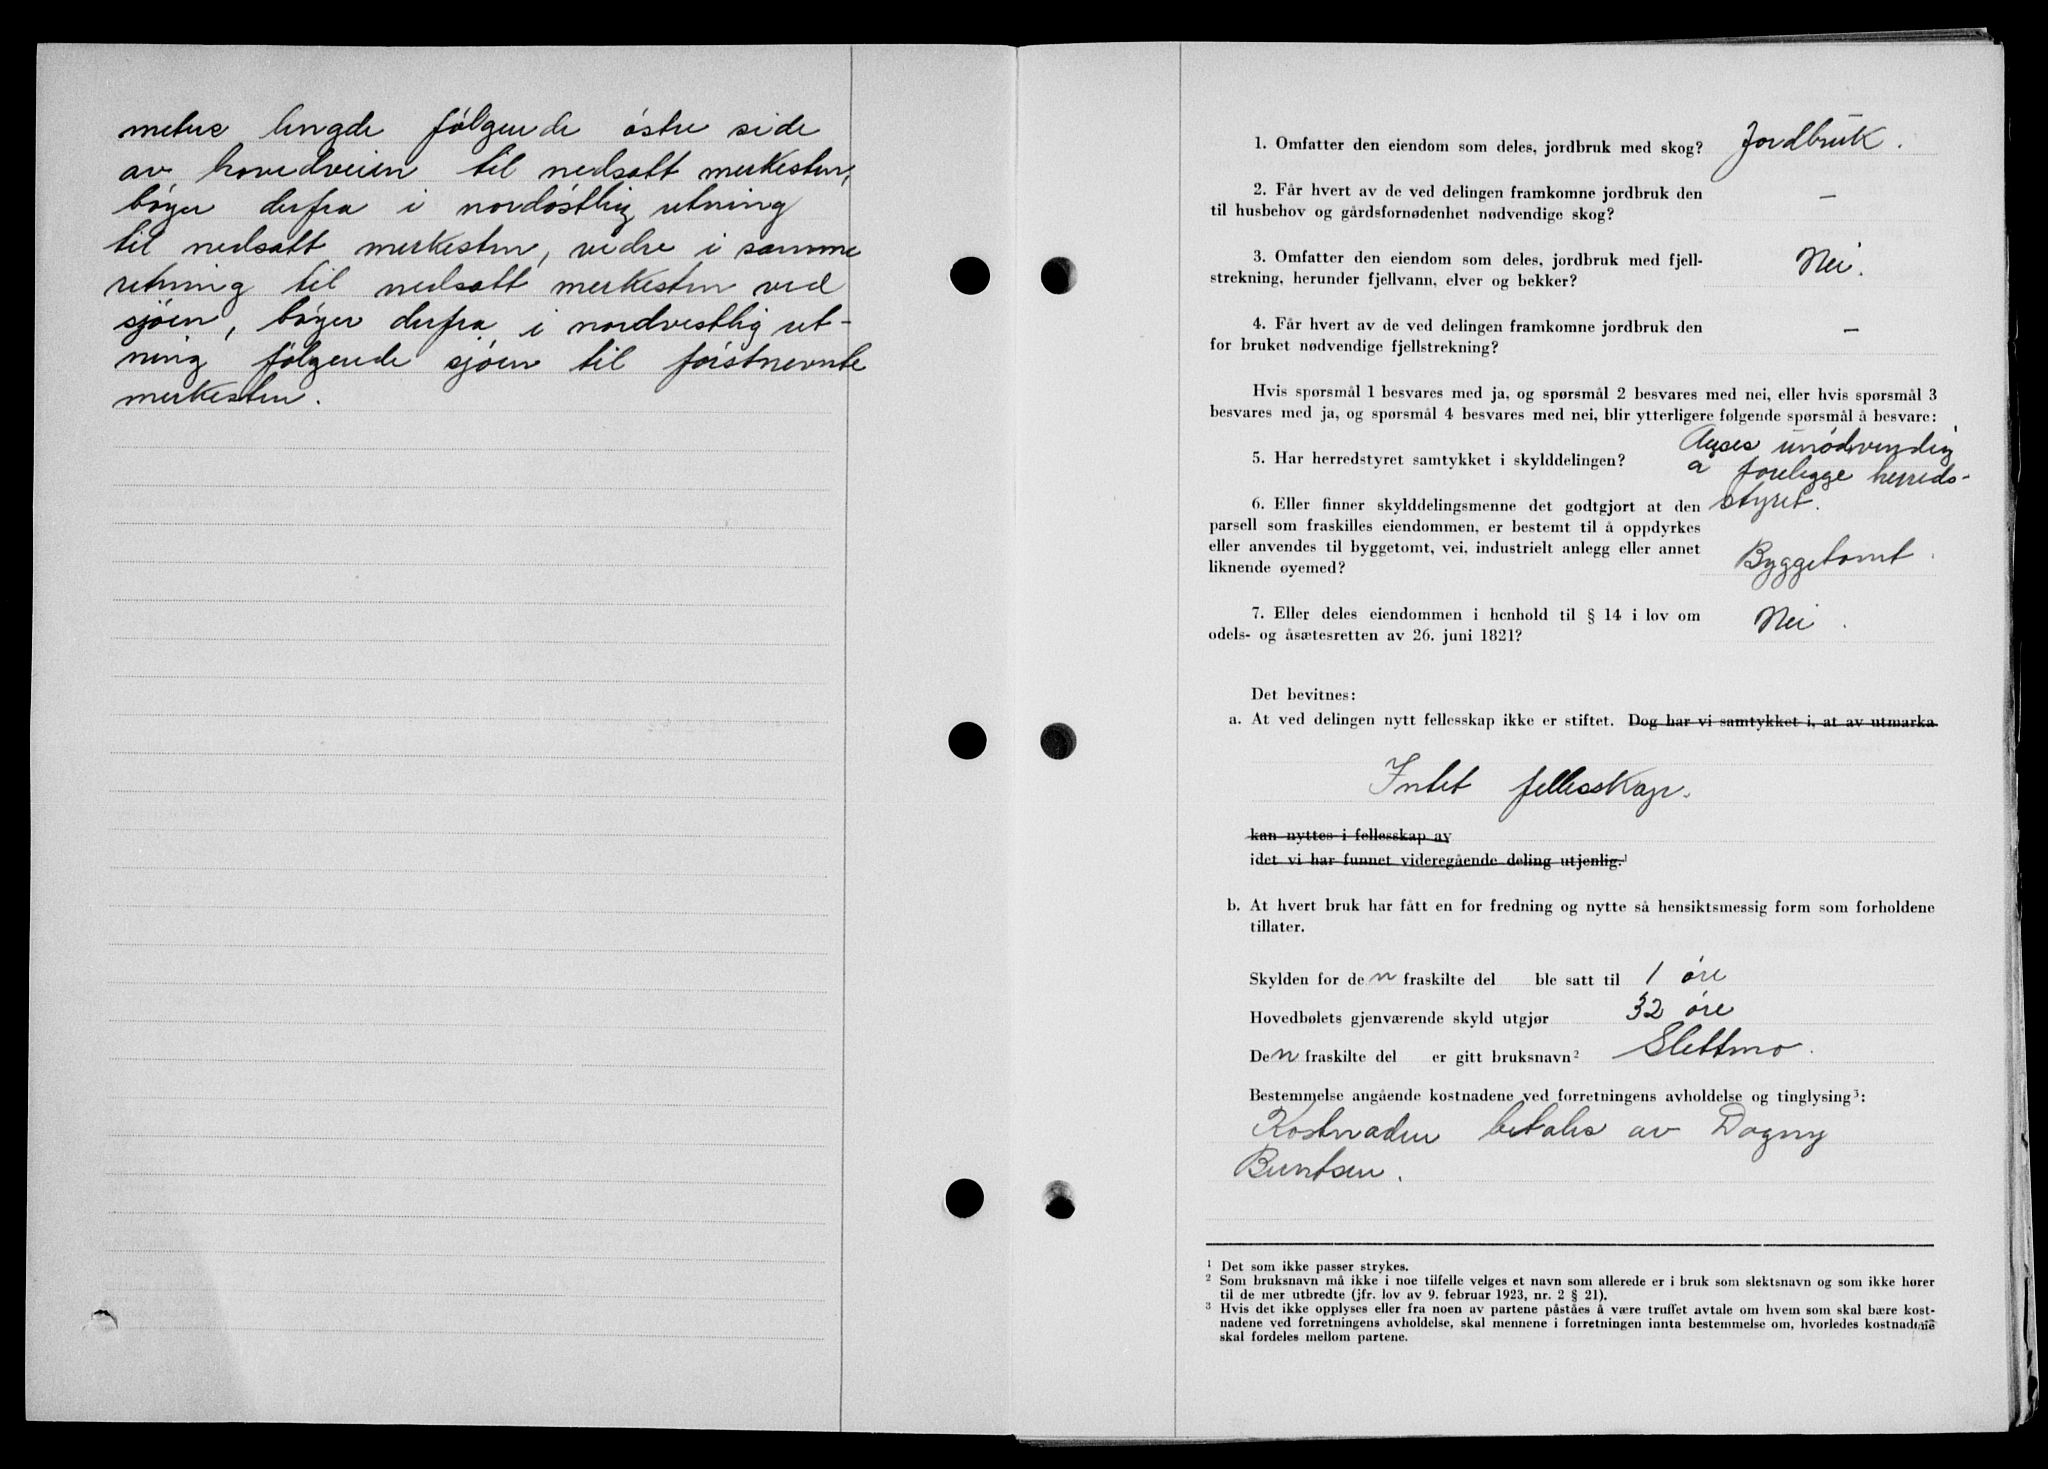 meters lengde følgende østre side
av hovedveien til nedsatt merkesten,
bøyer derfra i nordøstlig retning
til nedsatt merkesten, vidre i samme
retning til nedsatt merkesten ved
sjøen, bøyer derfra i nordvestlig ret-
ning følgende sjøen til førstnevnte
merkesten.
1. Omfatter den eiendom som deles, jordbruk med skog? Jordbruk.
2. Får hvert av de ved delingen framkomne jordbruk den
til husbehov og gårdsfornødenhet nødvendige skog? —
3. Omfatter den eiendom som deles, jordbruk med fjell-
strekning, herunder fjellvann, elver og bekker? Nei.
4. Får hvert av de ved delingen framkomne jordbruk den
for bruket nødvendige fjellstrekning? —
Hvis spørsmål 1 besvares med ja, og spørsmål 2 besvares med nei, eller hvis spørsmål 3
besvares med ja, og spørsmål 4 besvares med nei, blir ytterligere følgende spørsmål å besvare:
5. Har herredstyret samtykket i skylddelingen? Ansees unødvendig
å forelegge herreds-
styret.
6. Eller finner skylddelingsmenne det godtgjort at den
parsell som fraskilles eiendommen, er bestemt til å oppdyrkes
eller anvendes til byggetomt, vei, industrielt anlegg eller annet
liknende øyemed? Byggetomt.
7. Eller deles eiendommen i henhold til § 14 i lov om
odels- og åsætesretten av 26. juni 1821? Nei.
Det bevitnes:
a. At ved delingen nytt fellesskap ikke er stiftet. Dog har vi samtykket i, at av utmarka
Intet fellesskap.
kan nyttes i fellesskap av
idet vi har funnet videregående deling utjenlig.¹
b. At hvert bruk har fått en for fredning og nytte så hensiktsmessig form som forholdene
tillater.
Skylden for den fraskilte del ble satt til 1 øre
Hovedbølets gjenværende skyld utgjør 32 øre
Den fraskilte del er gitt bruksnavn² Slettmo.
Bestemmelse angående kostnadene ved forretningens avholdelse og tinglysing³:
Kostnaden betales av Dagny
Berntsen.
¹ Det som ikke passer strykes.
² Som bruksnavn må ikke i noe tilfelle velges et navn som allerede er i bruk som slektsnavn og som ikke hører
til de mer utbredte (jfr. lov av 9. februar 1923, nr. 2 § 21).
³ Hvis det ikke opplyses eller fra noen av partene påståes å være truffet avtale om hvem som skal bære kost-
nadene ved forretningens avholdelse, skal mennene i forretningen innta bestemmelse om, hvorledes kostnadene
skal fordeles mellom partene.